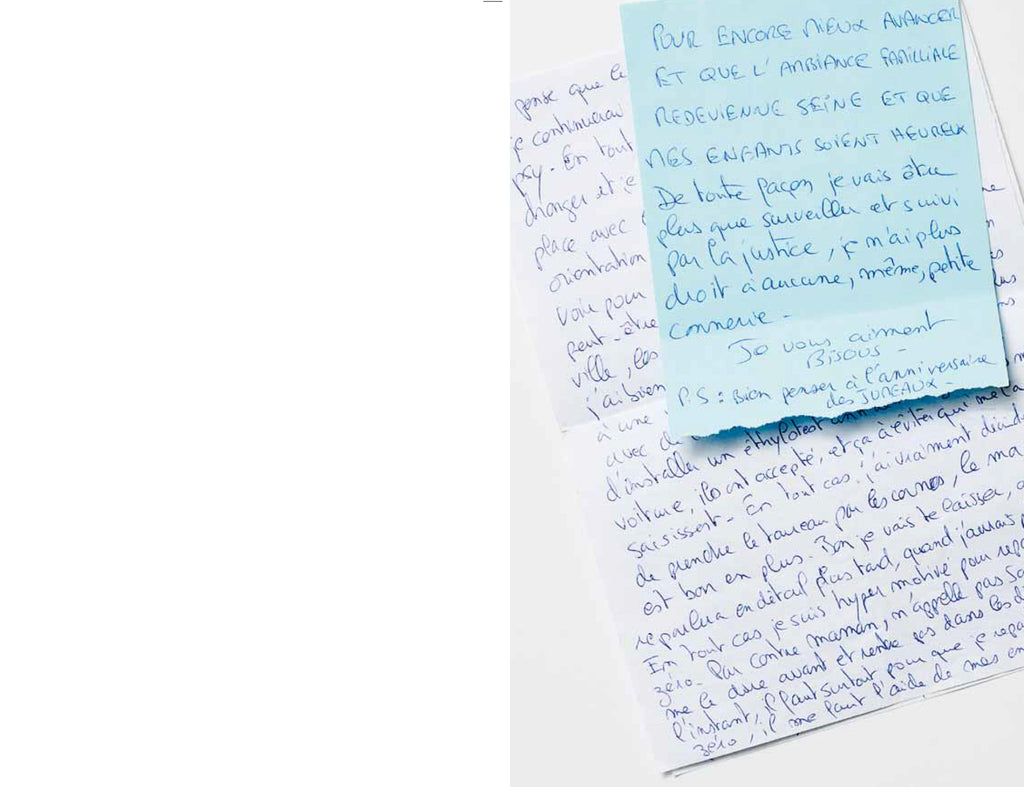 POUR ENCORE MIEUX AVANCER
ET QUE L'AMBIANCE FAMILLIALE
REDEVIENNE SEINE ET QUE
MES ENFANTS SOIENT HEUREUX
De toute façon je vais être
plus que surveiller et suivi
par la justice, je n'ai plus
droit à aucune, même, petite
connerie -
Je vous aiment
BISOUS -
P.S : Bien penser à l'anniversaire
des JUMEAUX -
pense que le
je continuerai
psy. En tout
changer et je
place avec
orientation
voir pour
peut-être
ville, les
j'ai bien
à une
avec
d'installer un éthylotest
voiture, ils ont accepté, et ça à éviter qui me l'a
saisissent - En tout cas j'ai vraiment décidé
de prendre le taureau par les cornes, le ma
est bon en plus. Bon je vais te laisser,
reparlera en détail plus tard, quand j'aurais
En tout cas je suis hyper motivé pour rep
zéro. Par contre maman, n'appelle pas
me le dire avant et rentre pas dans les
l'instant, il faut surtout pour que je repa
zéro, il me faut l'aide de mes en